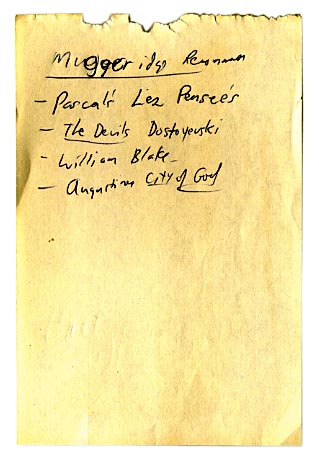 Muggeridge
- Pascal's Lez Penseés
- The Devils Dostoyevski
- William Blake
- Augustines City of God